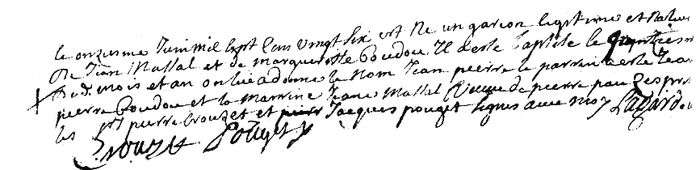 le onziesme Juin mil sept cens vingt six est né un garcon legitime et nature
de Jean Massal et de margueritte Boudou Il a este baptisé le quatriesme
dud. mois et an on luy a donné le nom Jean pierre le parrin a esté Jean
pierre Boudou et la marrine Jeane Massal de pierre pouzes pre
les pierre Crouzet et Jacques pouget signés avec moy Lagard
Crouzet Pouget